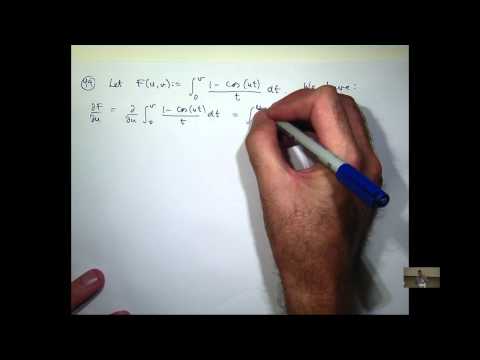 94 Let F(u,v):= ∫₀ᵛ (1 - cos(ut))/t dt. We have:
∂F/∂u = ∂/∂u ∫₀ᵛ (1 - cos(ut))/t dt = ∫